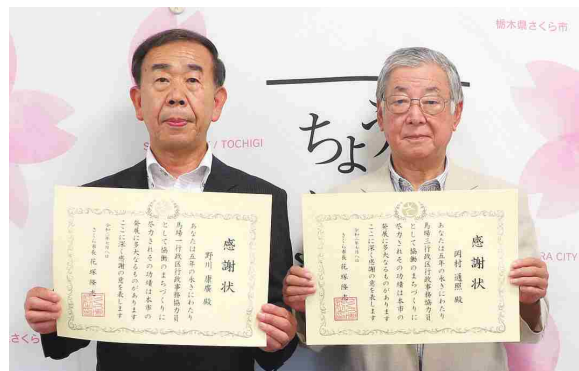 栃木県さくら市
/ TOCHIGI
ちょ
RA CITY
さくら
感謝状
野川 康廣 殿
あなたは五年の永きにわたり
馬場一行政区行政事務協力員
として協働のまちづくりに
尽力されその功績は本市の
発展に多大なるものがあります
ここに深く感謝の意を表します
さくら市長 花塚隆志
感謝状
岡村 通照 殿
あなたは五年の永きにわたり
馬場三行政区行政事務協力員
として協働のまちづくりに
尽力されその功績は本市の
発展に多大なるものがあります
ここに深く感謝の意を表します
さくら市長 花塚隆志